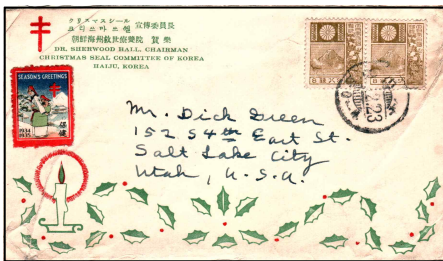 クリスマスシール
크리쓰마쓰씰
宣傳委員長
朝鮮海州救世療養院 賀樂
DR. SHERWOOD HALL, CHAIRMAN
CHRISTMAS SEAL COMMITTEE OF KOREA
HAIJU, KOREA
SEASON'S GREETINGS
1934
1935
保健
Mr. Dick Green
152 54th East St.
Salt Lake City
Utah, U.S.A.